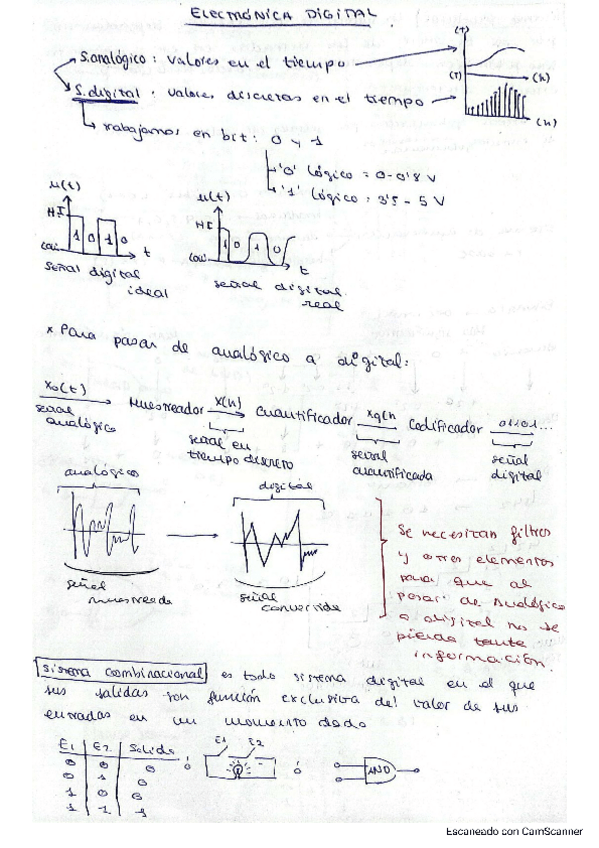 ELECTRÓNICA DIGITAL
S.analógico: valores en el tiempo
(T)
(n)
S.digital: valores discretos en el tiempo
(T)
(n)
trabajamos en bit: 0 y 1
'0' lógico = 0-0'8 V
'1' lógico = 3'5 - 5 V
u(t)
HI
1 0 1 0
low
t
señal digital
ideal
u(t)
HI
1 0 1 0
low
t
señal digital
real
x Para pasar de analógico a digital:
xa(t) Muestreador x(n) Cuantificador xq(n Codificador 01101...
señal
analógico
señal en
tiempo discreto
señal
cuantificada
señal
digital
analógico
digital
señal
muestreada
señal
convertida
Se necesitan filtros
y otros elementos
para que al
pasar de analógico
a digital no se
pierda tanta
información.
Sistema combinacional es todo sistema digital en el que
sus salidas son función exclusiva del valor de sus
entradas en un momento dado
E1 E2 Salida
0 0 0
0 1 0
1 0 0
1 1 1
ó
E1 E2
ó
AND
Escaneado con CamScanner